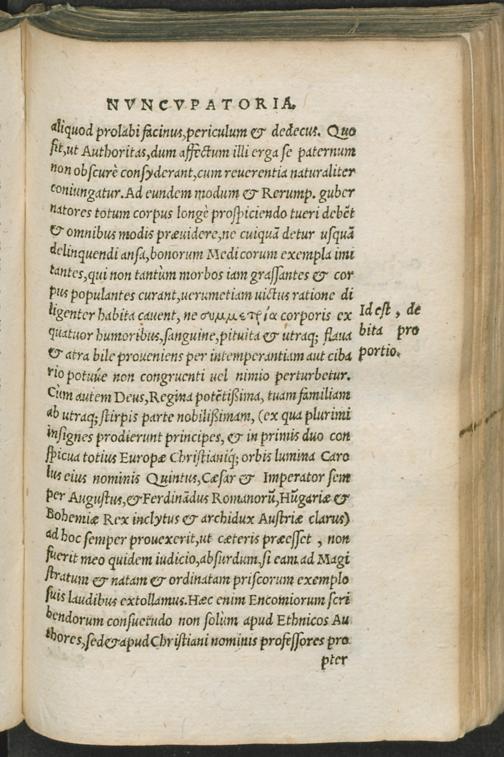 NVNCVPATORIA.
aliquod prolabi facinus, periculum & dedecus. Quo
fit, ut Authoritas, dum affectum illi erga se paternum
non obscurè consyderant, cum reuerentia naturaliter
coniungatur. Ad eundem modum & Rerump. guber
natores totum corpus longè prospiciendo tueri debẽt
& omnibus modis præuidere, ne cuiquã detur usquã
delinquendi ansa, bonorum Medicorum exempla imi
tantes, qui non tantùm morbos iam grassantes & cor
pus populantes curant, uerumetiam uictus ratione di
ligenter habita cauent, ne συμμετρία corporis ex
quatuor humoribus, sanguine, pituita & utraq; flaua
& atra bile proueniens per intemperantiam aut ciba
rio potuùe non congruenti uel nimio perturbetur.
Cùm autem Deus, Regina potẽtißima, tuam familiam
ab utraq; stirpis parte nobilißimam, (ex qua plurimi
insignes prodierunt principes, & in primis duo con
spicua totius Europæ Christianiq́; orbis lumina Caro
lus eius nominis Quintus, Cæsar & Imperator sem
per Augustus, & Ferdinãdus Romanorũ, Hũgariæ &
Bohemiæ Rex inclytus & archidux Austriæ clarus)
ad hoc semper prouexerit, ut cæteris præesset, non
fuerit meo quidem iudicio, absurdum, si eam ad Magi
stratum & natam & ordinatam priscorum exemplo
suis laudibus extollamus. Hæc enim Encomiorum scri
bendorum consuetudo non solùm apud Ethnicos Au
thores, sed & apud Christiani nominis professores pro
pter
Id est, de
bita pro
portio.